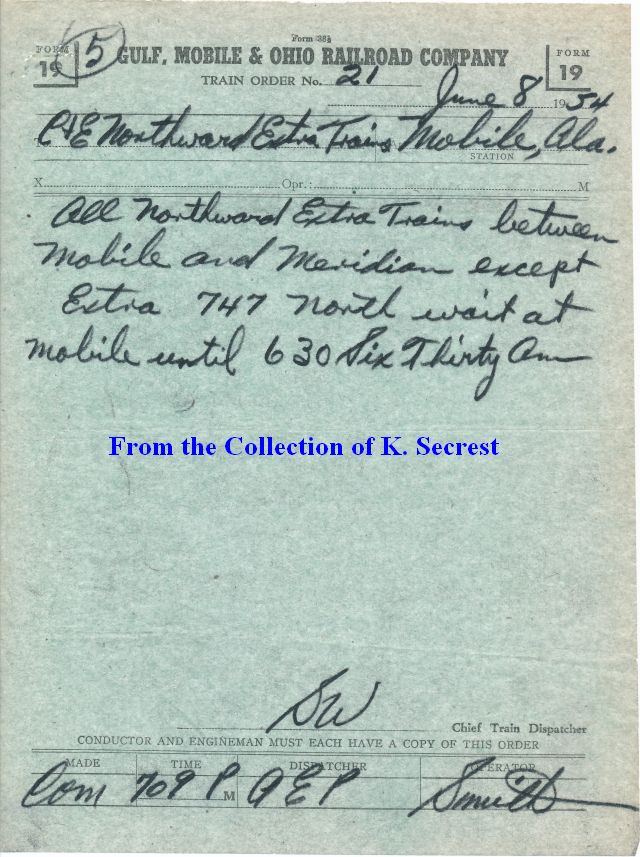 Form 38½
FORM 19 (5) GULF, MOBILE & OHIO RAILROAD COMPANY FORM 19
TRAIN ORDER No. 21
June 8, 1954
C&E Northward Extra Trains Mobile, Ala.
STATION
X Opr.: M
All Northward Extra Trains between
Mobile and Meridian except
Extra 747 North wait at
Mobile until 630 Six Thirty Am
From the Collection of K. Secrest
SW
Chief Train Dispatcher
CONDUCTOR AND ENGINEMAN MUST EACH HAVE A COPY OF THIS ORDER
MADE TIME DISPATCHER OPERATOR
Com 709 P M AEP Smith